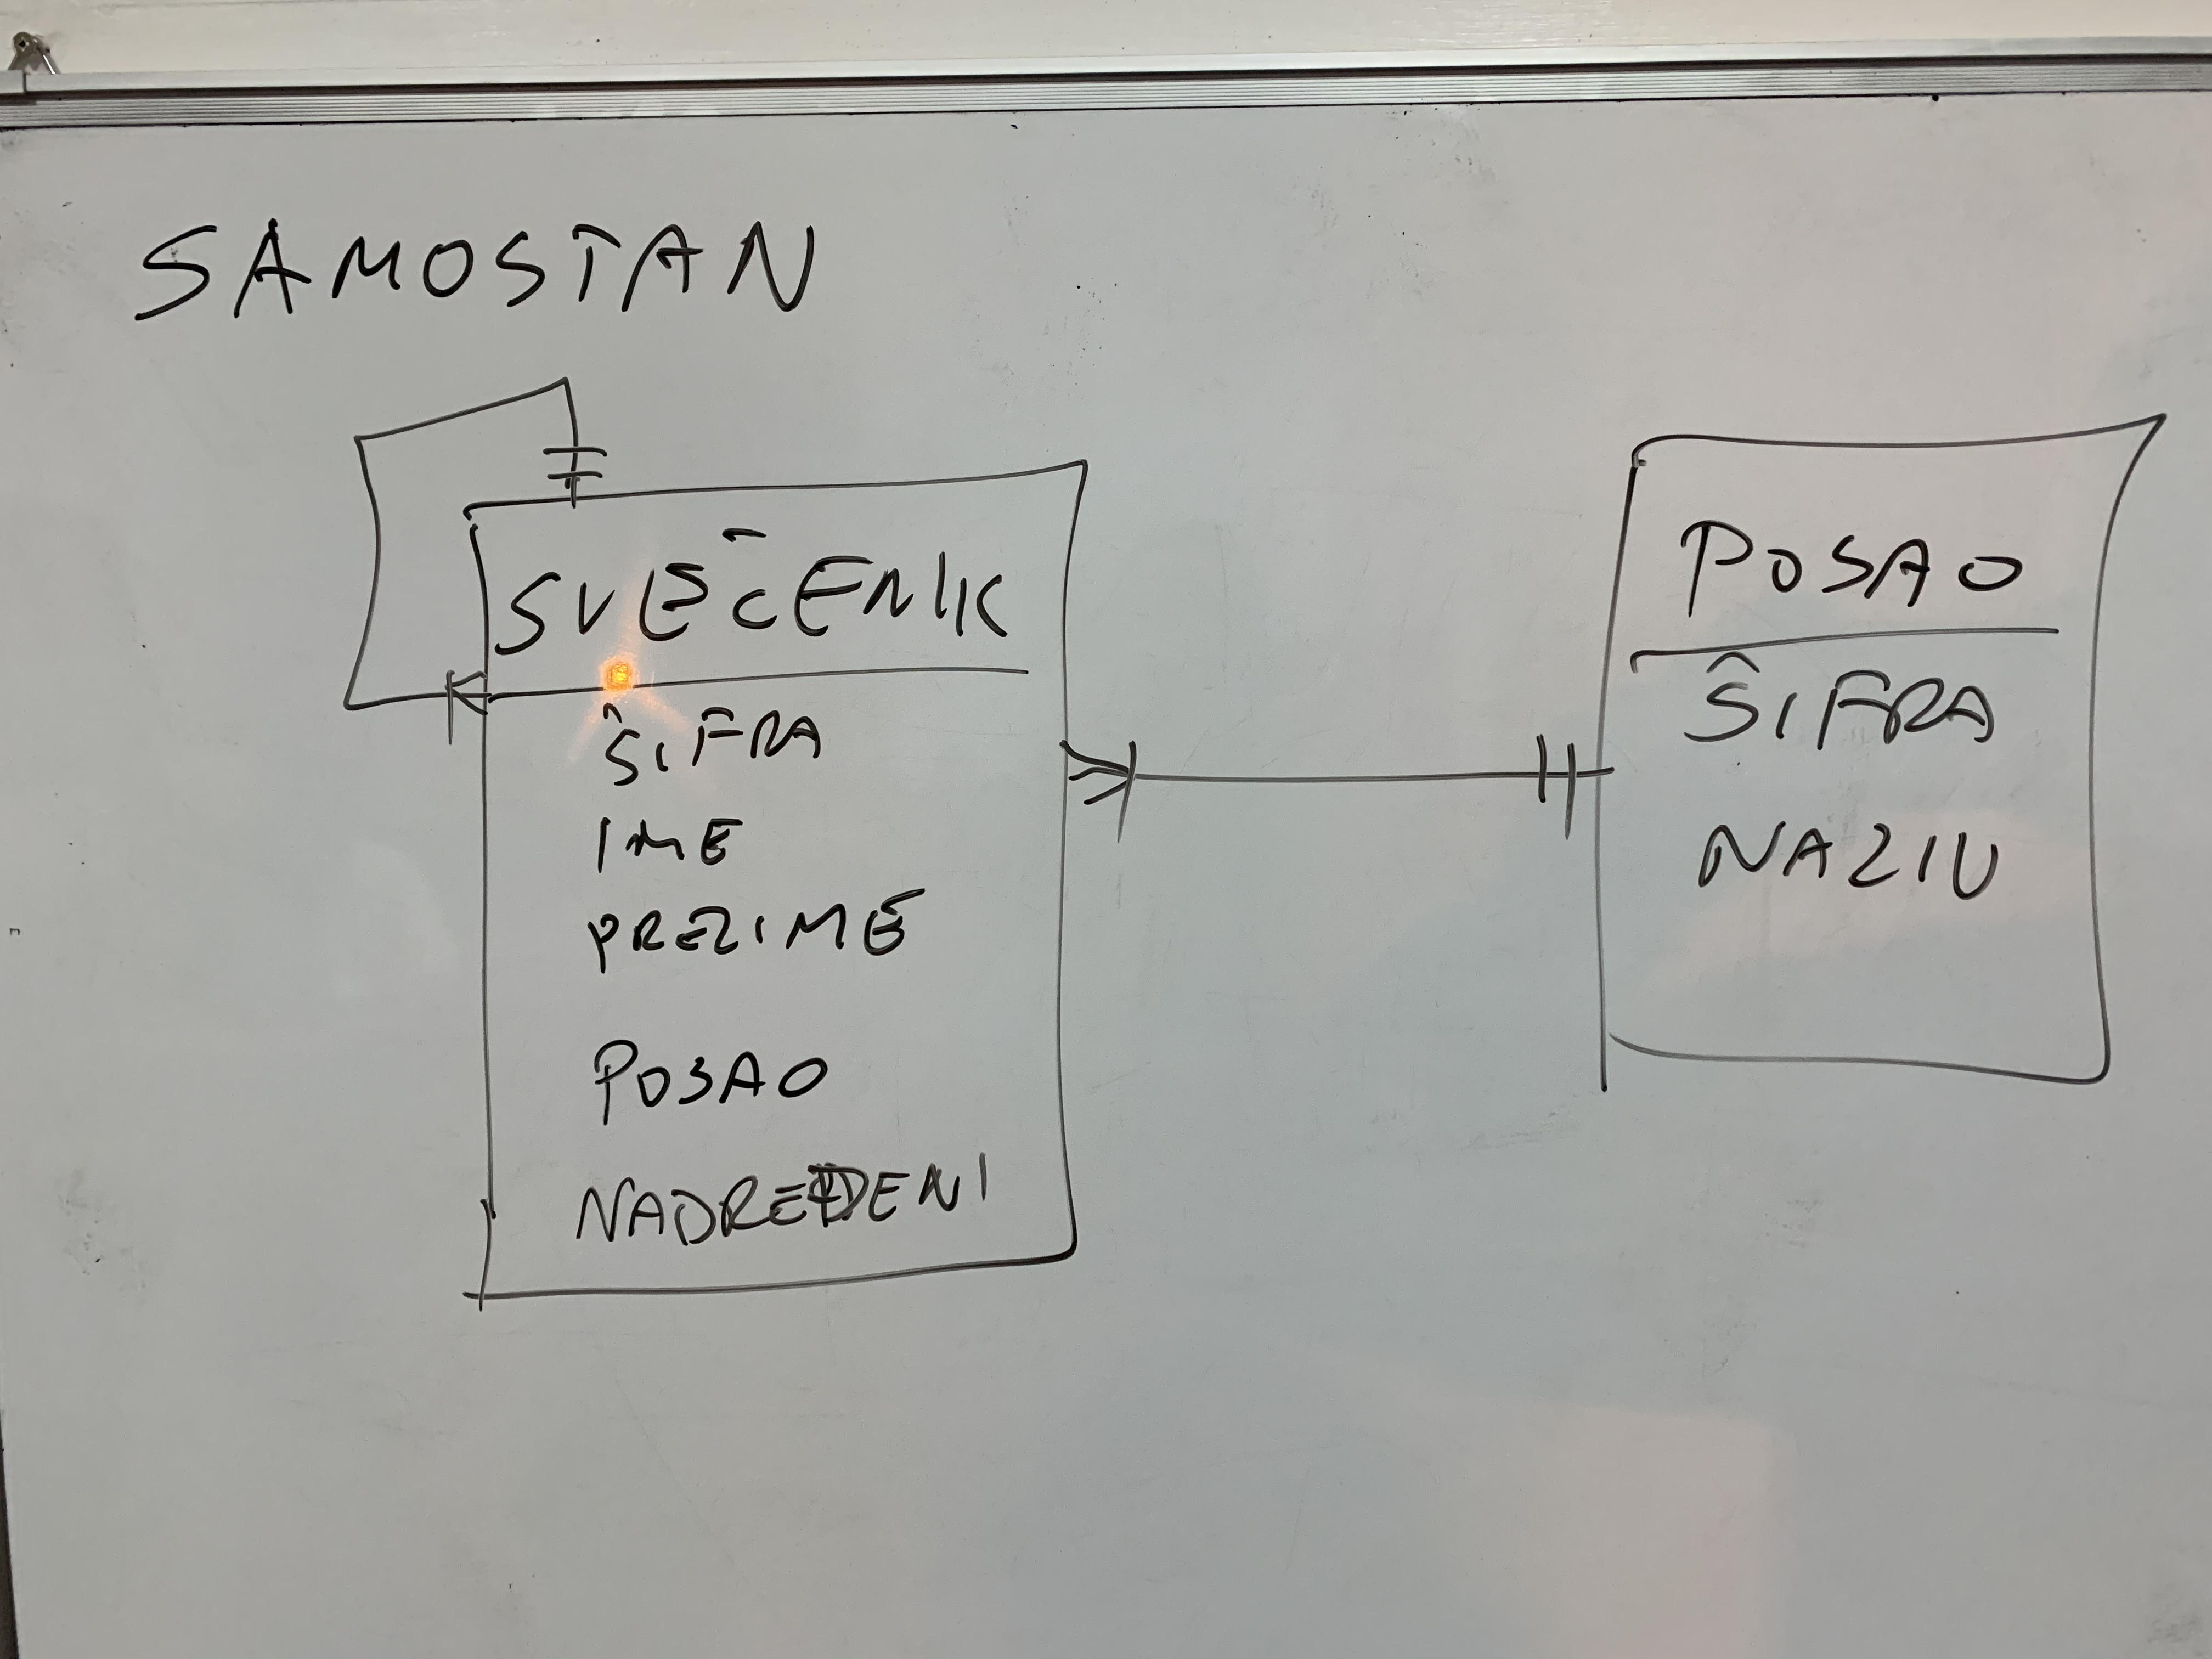 SAMOSTAN
SVEĆENIK
ŠIFRA
IME
PREZIME
POSAO
NADREĐENI
POSAO
ŠIFRA
NAZIV